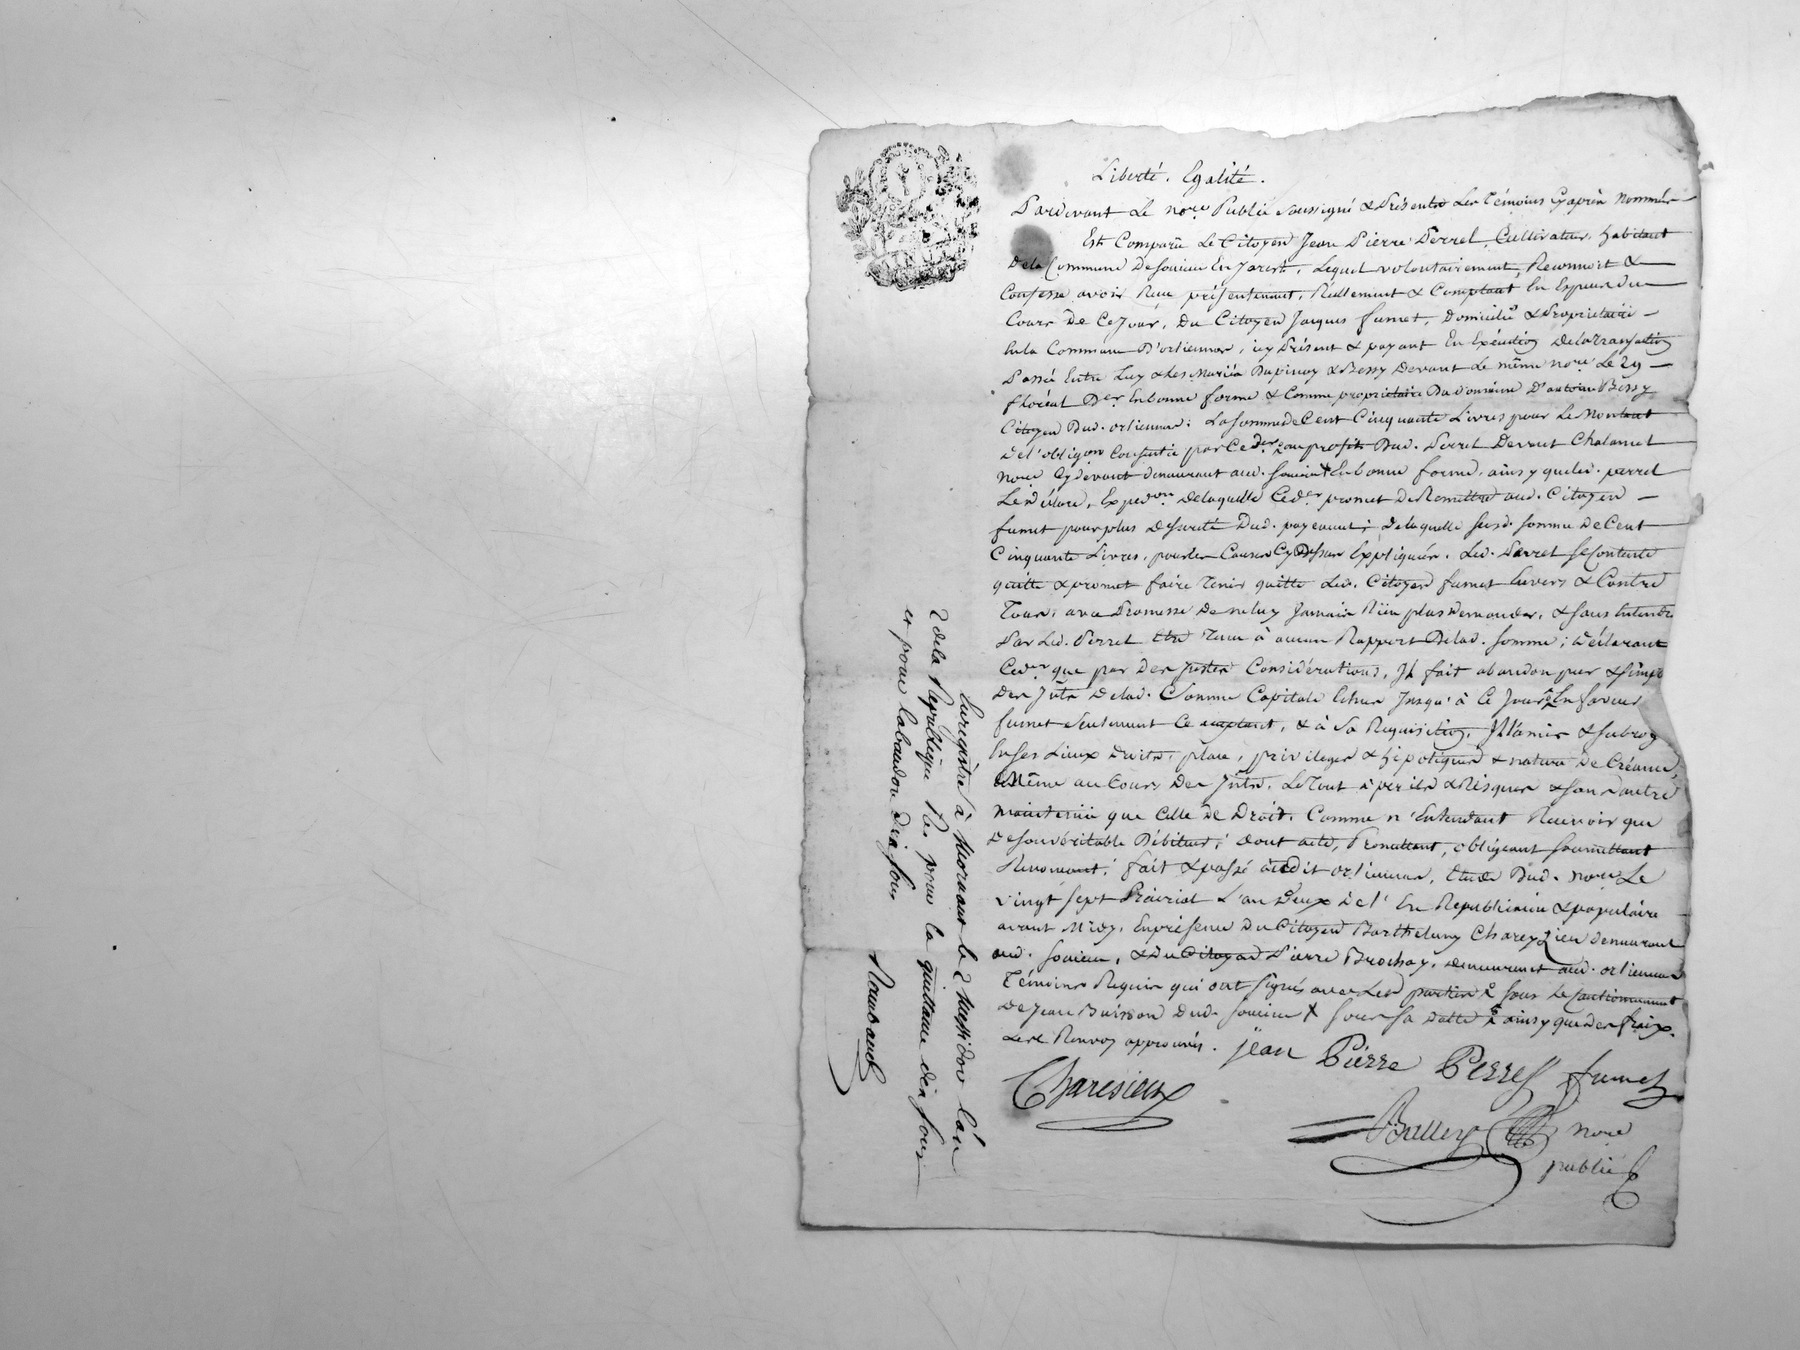 Liberté. Egalité.
Pardevant Le nore Public Soussigné & Présents Les témoins Cyaprès Nommés
Est Comparû Le Citoyen Jean Pierre Perrel, Cultivateur, habitant
De la Commune De Soucieu En Jarest, Lequel volontairement, Reconnoit &
Confesse avoir Reçu présentement, Réellement & Comptant En Espèces du
Cours De Ce Jour, Du Citoyen Jacques fumet, Domicilié & Propriétaire
En la Commune D'orlienas, icy Présent & payant En Exécution De la Transaction
Passée Entre Luy & Les Mariés Dupinay & Bessy Devant Le même nore Le 29
floréal Der En bonne forme & Comme propriétaire Du Domaine D'antoine Bessy
Citoyen Dud. orlienas; La Somme De Cent Cinquante Livres pour Le Montant
De l'obligon Consentie par Ce der au profit Dud. Perrel Devant Chalamel
nore Cydevant demeurant aud. Soucieu En bonne forme, ainsy que led. perrel
Le Déclare, Expedon De laquelle Ce der promet De Remettre aud. Citoyen
fumet pour plus De Sureté Dud. payement; De laquelle susd. Somme De Cent
Cinquante Livres, pour les Causes Cy Dessus Expliquées, Led. Perrel Se Contente
quitte & promet faire Tenir quitte Led. Citoyen fumet Envers & Contre
Tous, avec Promesse De ne luy Jamais Rien plus Demander, & Sans Entendre
Par Led. Perrel Etre Tenu à aucun Rapport De lad. Somme; Déclarant
Ce der que par Des Justes Considérations, Il fait abandon pur & Simple
Des Jnts De lad. Somme Capitale Echus Jusqu'à Ce Jour En faveur
fumet Seulement Ce acceptant, & à Sa Requisition, Il l'a mis & Subrogé
En Ses Lieux Droits, place, privileges & hipotèques & nature De Créance,
Même au Cours Des Jnts, Le Tout à périls & Risques & Sans autre
maintenue que Celle De Droit, Comme n'Entendant Recevoir que
De Son véritable Débiteur; Dont acte, Promettant, obligeant Soumettant
Renonçant; fait & passé audit orlienas, Etude Dud. nore Le
vingt Sept Prairial L'an Deux De l'Ere Republicaine & populaire
avant Midy, En présence Du Citoyen Barthelemy Charezieu demeurant
aud. Soucieu, & Du Citoyen Pierre Brochay, demeurant aud. orlienas
Témoins Requis qui ont Signés avec Les parties Sous Le Cautionnement
De Jean Buisson Dud. Soucieu Sous Sa Datte ainsy que Des fraix.
Les Renvoy approuvés. jean Pierre Perrel fumet
Charesieux
Balley nore
public
Enregistré à Mornant le 2 Messidor l'an
2 de la République Rs pour la quittance dix sous
et pour l'abandon dix sous
Rambaud